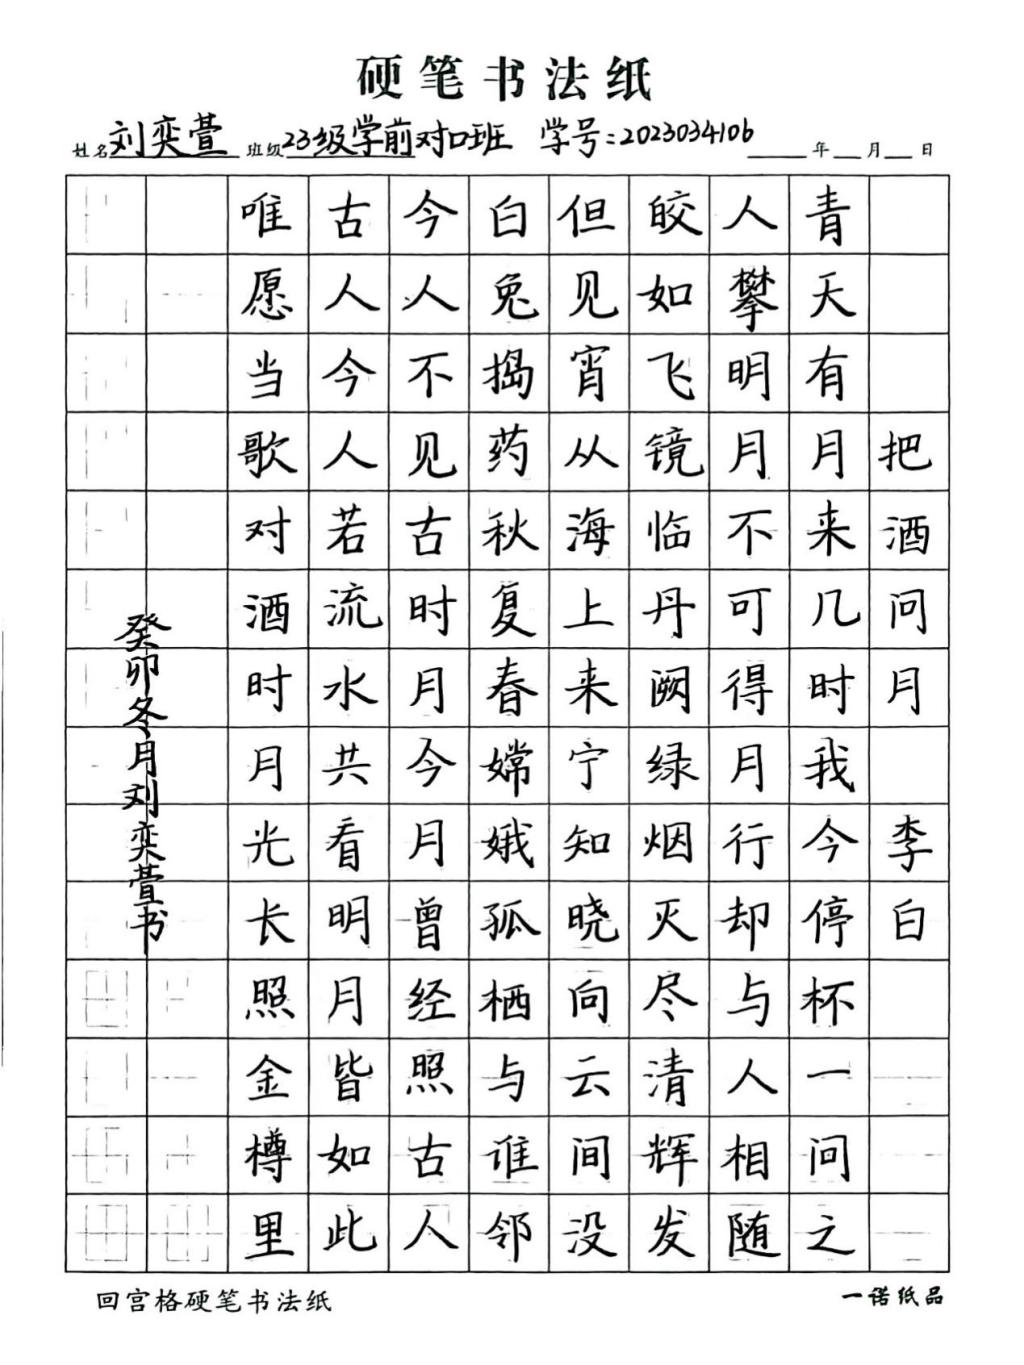 硬笔书法纸
姓名 刘奕萱 班级 23级学前对口班 学号:2023034106 年 月 日
把酒问月 李白
青天有月来几时我今停杯一问之
人攀明月不可得月行却与人相随
皎如飞镜临丹阙绿烟灭尽清辉发
但见宵从海上来宁知晓向云间没
白兔捣药秋复春嫦娥孤栖与谁邻
今人不见古时月今月曾经照古人
古人今人若流水共看明月皆如此
唯愿当歌对酒时月光长照金樽里
癸卯冬月刘奕萱书
回宫格硬笔书法纸
一诺纸品